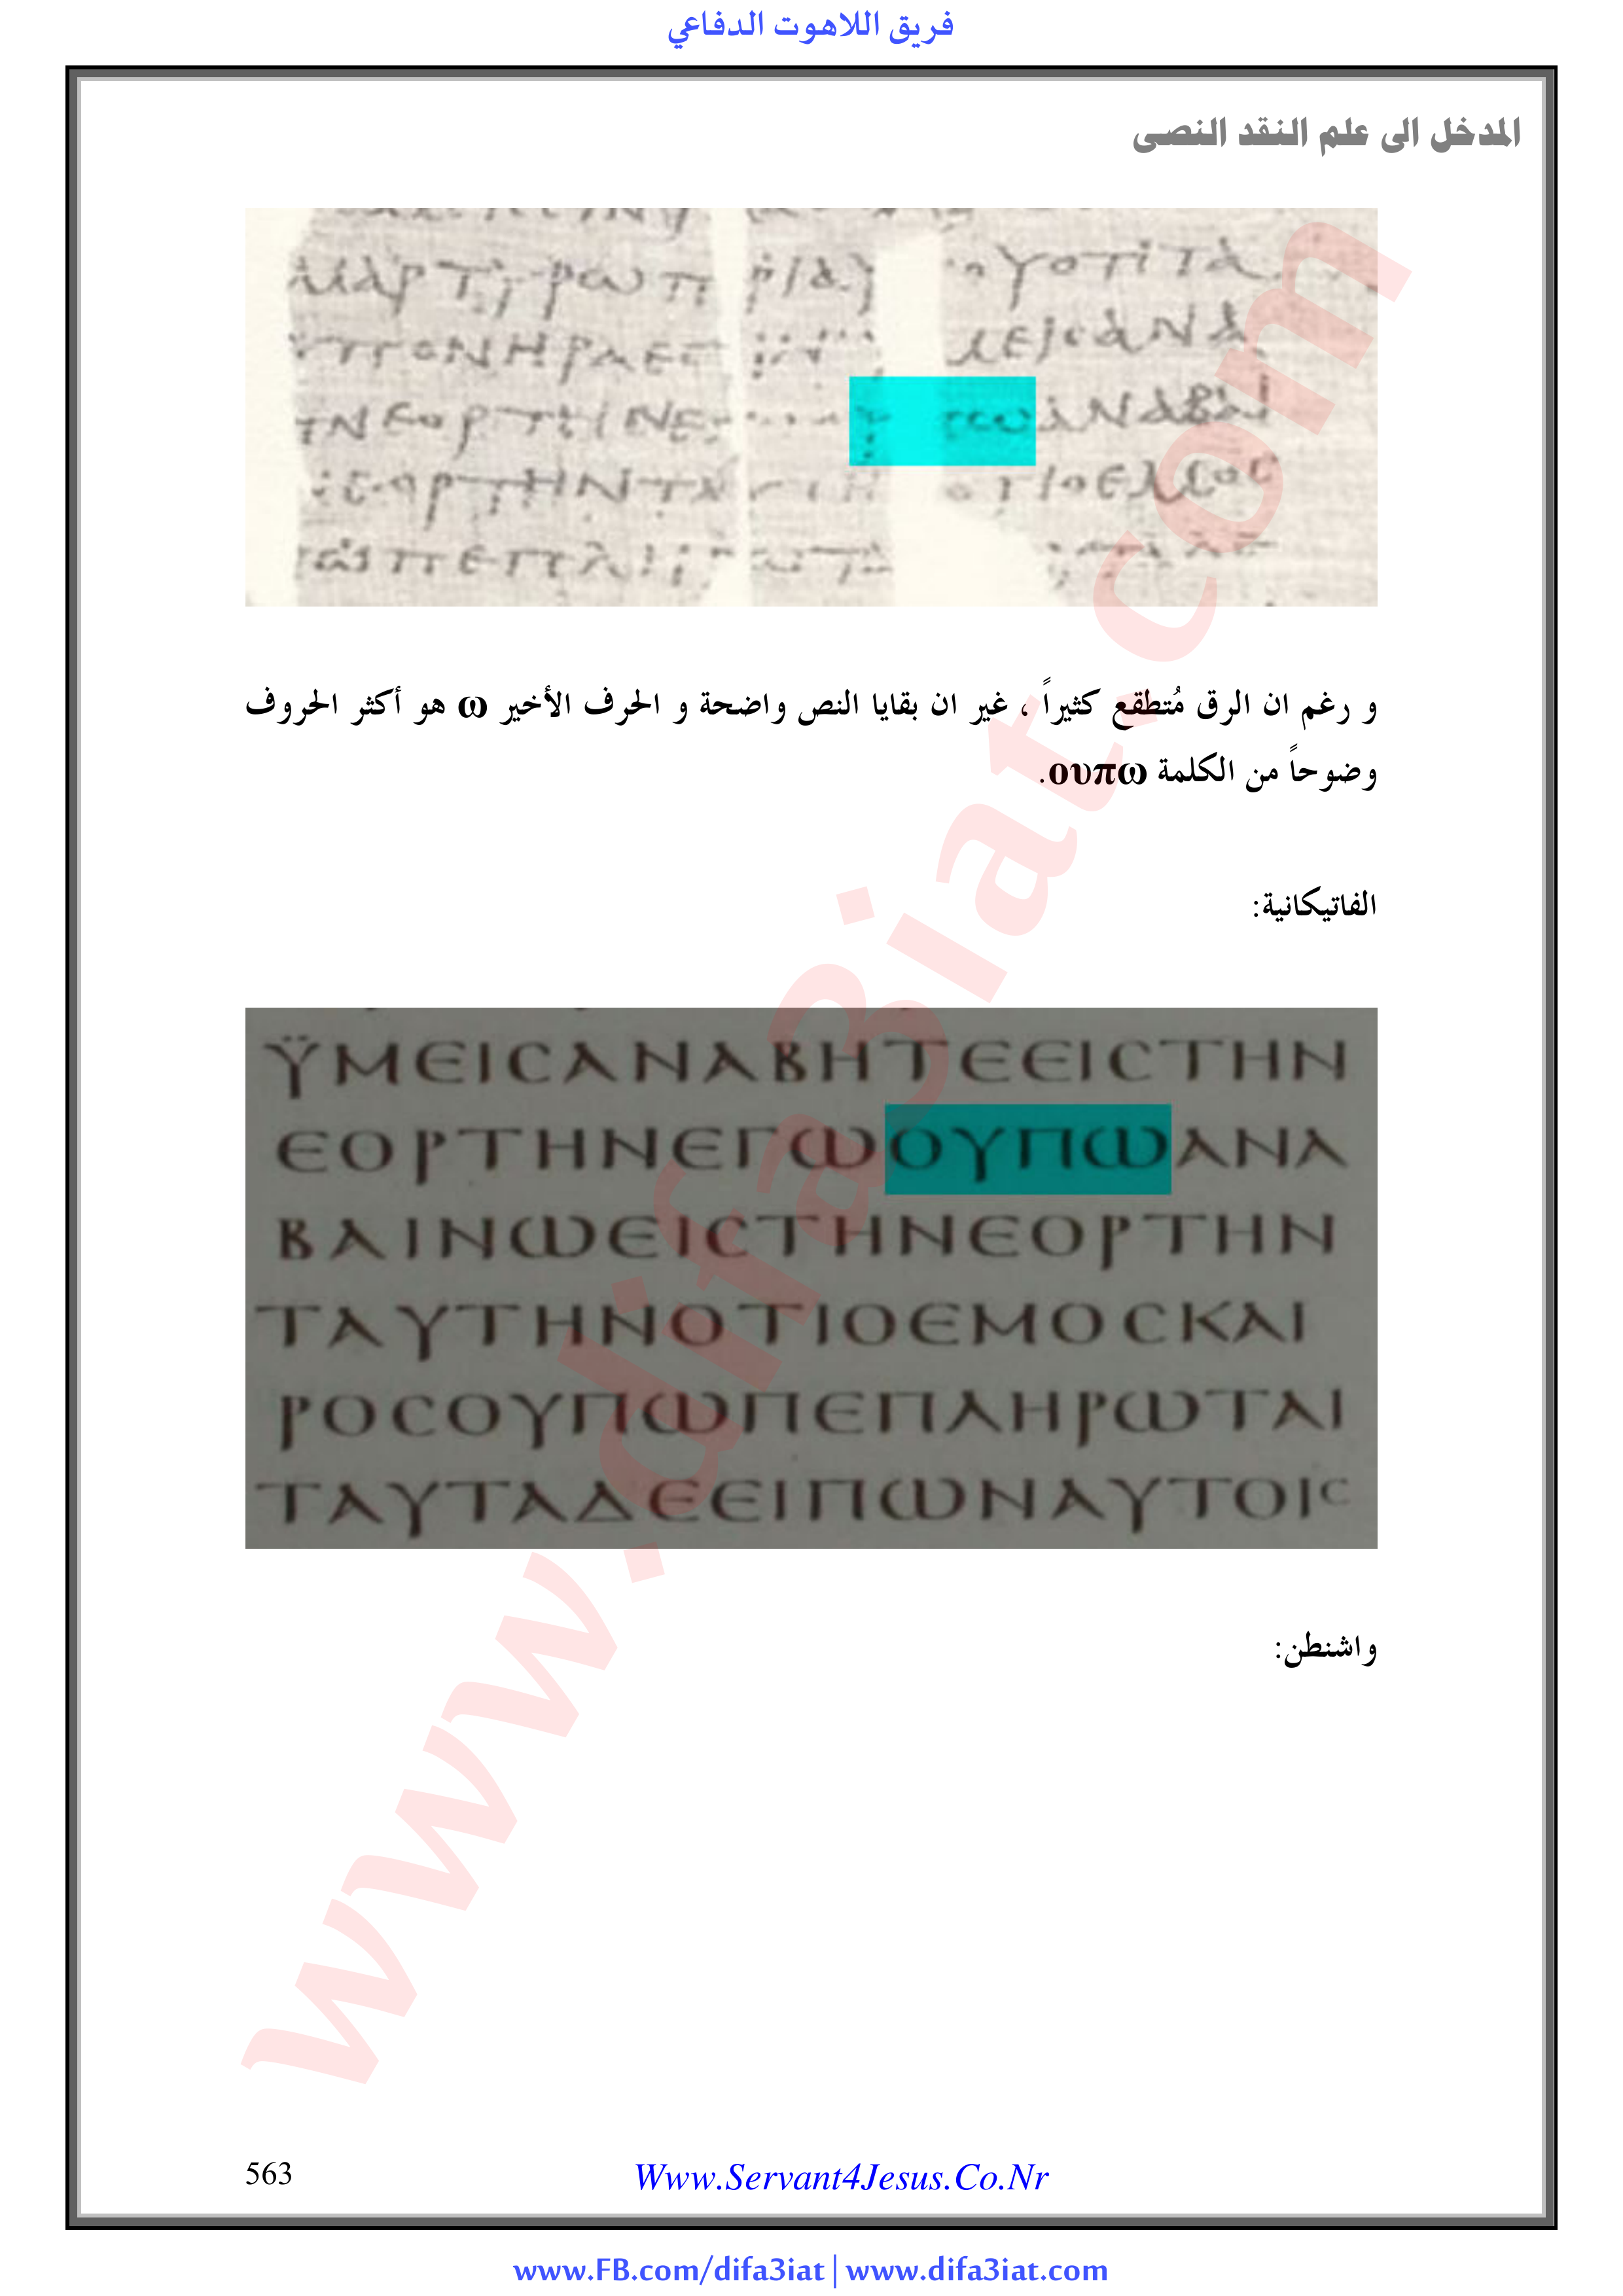 فريق اللاهوت الدفاعي
المدخل الى علم النقد النصى
و رغم ان الرق مُتطقع كثيراً ، غير ان بقايا النص واضحة و الحرف الأخير ω هو أكثر الحروف
وضوحاً من الكلمة ουπω.
الفاتيكانية:
ΫΜΕΙCΑΝΑΒΗΤΕΕΙCΤΗΝ
ΕΟΡΤΗΝΕΓωΟΥΠωΑΝΑ
ΒΑΙΝωΕΙCΤΗΝΕΟΡΤΗΝ
ΤΑΥΤΗΝΟΤΙΟΕΜΟCΚΑΙ
ΡΟCΟΥΠωΠΕΠΛΗΡωΤΑΙ
ΤΑΥΤΑΔΕΕΙΠωΝΑΥΤΟΙC
واشنطن:
www.difa3iat.com
563
Www.Servant4Jesus.Co.Nr
www.FB.com/difa3iat | www.difa3iat.com